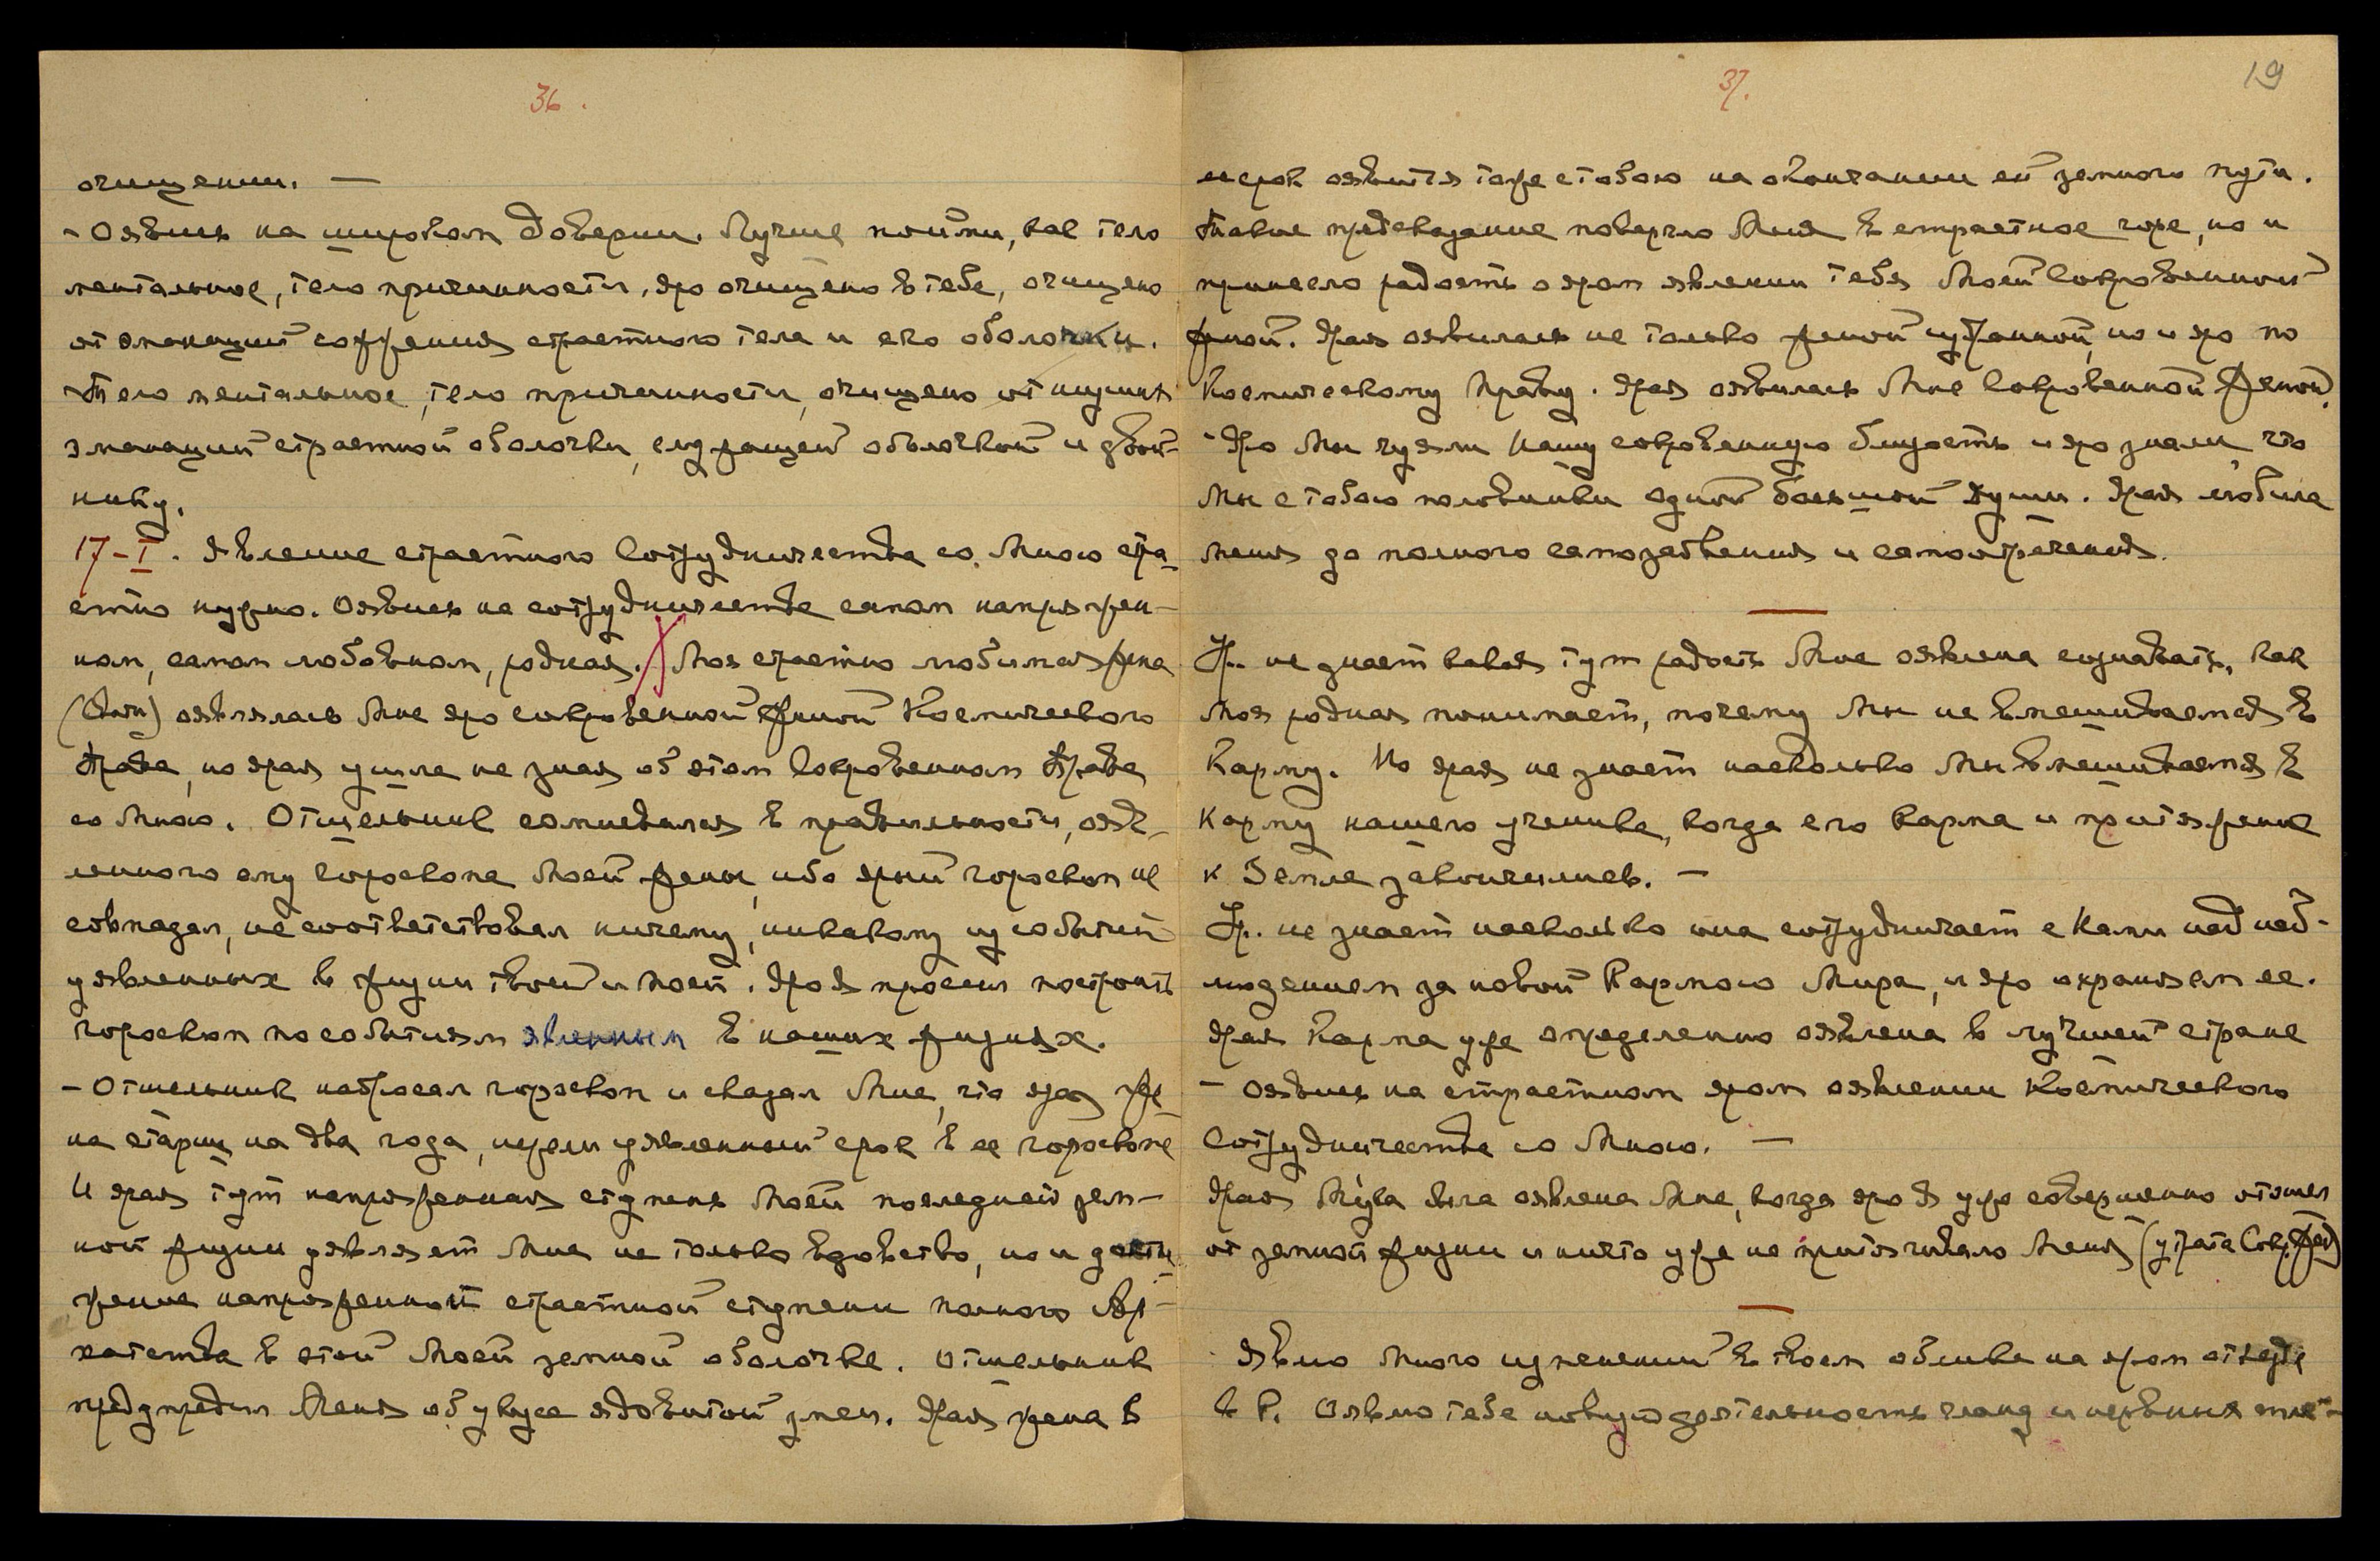 36.
очищении. —
- Оявись на широком доверии. Лучше пойми, как тело
ментальное, тело причинности, яро очищено в тебе, очищено
от эманаций сожжения страстного тела и его оболочки.
Тело ментальное, тело причинности, очищено от
эманаций страстной оболочки, служащей оболочкой и двой-
нику.
17-I. Явление страстного Сотрудничества со Мною стра-
стно нужно. Оявись на сотрудничестве самом напряжен-
ном, самом любовном, родная. Моя страстно любимая жена
оявлялась Мне яро сокровенной женой Космического
Права, но ярая ушла не зная об этом Сокровенном Праве
со Мною. Отшельник сомневался в правильности, ояв-
ленного ему гороскопа Моей жены, ибо ярый гороскоп не
совпадал, не соответствовал ничему, никакому из событий
уявленных в жизни твоей и Моей. Яро Я просил построить
гороскоп по событиям явленным в наших жизнях.
- Отшельник набросал гороскоп и сказал Мне, что ярая же-
на старш на два года, нежели уявленный срок в ее гороскопе
И ярая тут напряженная ступень Моей последней зем-
ной жизни уявляет Мне не только вдовство, но и дости-
жение напряженной страстной ступени полного Ар-
хатства в этой Моей земной оболочке. Отшельник
предупредил Меня об укусе ядовитой змеи. Ярая жена в
37.
19
срок оявится тоже с тобою на окончании ей земного пути.
Такое предсказание повергло Меня в страстное горе, но и
принесло радость о яром явлении тебя Моей Сокровенной
женой. Ярая оявилась не только женой избранной, но и яро по
Космическому Праву. Ярая оявилась Мне Сокровенной Женой.
- Яро Мы чуяли Нашу сокровенную близость и яро знали, что
Мы с тобою половинки одной большой души. Ярая любила
Меня до полного самозабвения и самоотречения.
Ур. не знает какая тут радость Мне оявлена сознавать, как
Моя родная понимает, почему Мы не вмешиваемся в
Карму. Но ярая не знает насколько Мы вмешиваемся в
Карму нашего ученика, когда его карма и притяжение
к Земле закончились. —
Ур. не знает насколько она сотрудничает с Нами над наб-
людением за новой Кармою Мира, и яро охраняем ее.
Ярая Карма уже определенно оявлена в лучшей стране
- Оявись на страстном яром оявлении Космического
Сотрудничества со Мною. —
Ярая Мука была оявлена Мне, когда яро Я уже совершенно отошел
от земной жизни и ничто уже не притягивало Меня (утрата Сокр. Жен)
Явлю много изменений в твоем облике на яром отъезде
в Р. Оявлю тебе новую деятельность гланд и нервных